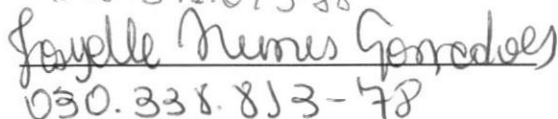 Josyelle Nunes Gonçalves
030.338.813-78